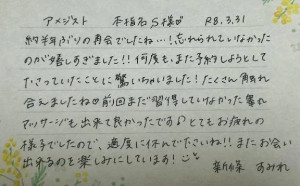 アメジスト 本指名S様♡ R8.3.31
約半年ぶりの再会でしたね…!忘れられていなかった
のが嬉しすぎました!!何度もまた予約しようとして
たさっていたことに驚いちゃいました!たくさん触れ
合えましたね♡前回まだ習得していなかった睾丸
マッサージも出来て良かったです♪とてもお疲れの
様子でしたので、適度に休んで下さいね!!またお会い
出来るのを楽しみにしています!
新條 すみれ